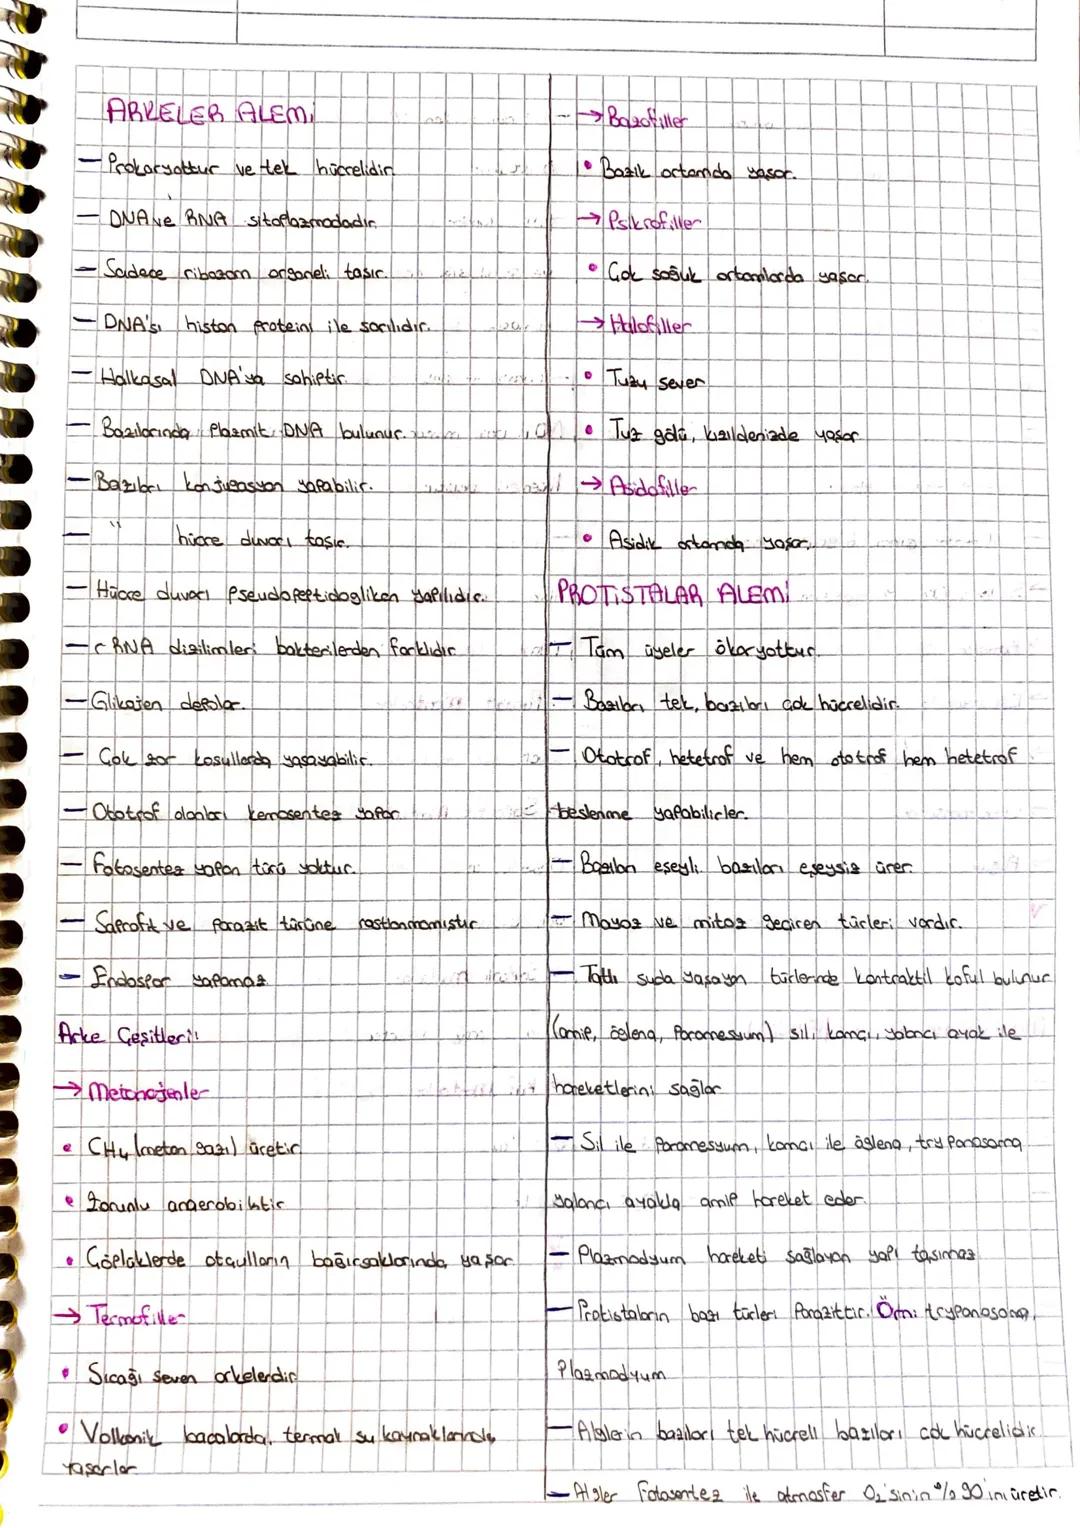 ARKELER ALEMİ
— Prokaryottur ve tek hücrelidir.
— DNA ve RNA sitoplazmadadır.
— Sadece ribozom organeli taşır.
— DNA'sı histon proteini ile sarılıdır.
— Halkasal DNA'ya sahiptir.
— Bazılarında Plazmit DNA bulunur.
— Bazıları konjugasyon yapabilir.
— " hücre duvarı taşır.
— Hücre duvarı Pseudopeptidoglikan yapılıdır.
— rRNA dizilimleri bakterilerden farklıdır
— Glikojen depolar.
— Çok zor koşullarda yaşayabilir.
— Ototrof olanları kemosentez yapar
— Fotosentez yapan türü yoktur.
— Saprofit ve parazit türüne rastlanmamıştır
— Endospor yapamaz
Arke Çeşitleri:
→ Metanojenler
• CH4 (metan gazı) üretir.
• Zorunlu anaerobiktir
• Çöplüklerde otçulların bağırsaklarında yaşar
→ Termofiller
• Sıcağı seven arkelerdir
• Volkanik bacalarda, termal su kaynaklarında
yaşarlar
→ Bazofiller
• Bazik ortamda yaşar.
→ Psikrofiller
• Çok soğuk ortamlarda yaşar.
→ Halofiller
• Tuzu sever
• Tuz gölü, kızıldenizde yaşar
→ Asidofiller
• Asidik ortamda yaşar.
PROTİSTALAR ALEMİ
— Tüm üyeler ökaryottur.
— Bazıları tek, bazıları çok hücrelidir.
— Ototrof, hetetrof ve hem ototrof hem hetetrof
beslenme yapabilirler.
— Bazıları eşeyli bazıları eşeysiz ürer.
— Mayoz ve mitoz geçiren türleri vardır.
— Tatlı suda yaşayan türlerinde kontraktil koful bulunur
(amip, öglena, Paramesyum) sil, kamçı, yalancı ayak ile
hareketlerini sağlar
— Sil ile Paramesyum, kamçı ile öglena, tryPanosoma
yalancı ayakla amip hareket eder.
— Plazmodyum hareketi sağlayan yapı taşımaz
— Protistaların bazı türleri Parazittir. Örn: tryPanosoma,
Plazmodyum
— Alglerin bazıları tek hücreli bazıları çok hücrelidir
— Algler Fotosentez ile atmosfer O2'sinin %90'ını üretir.